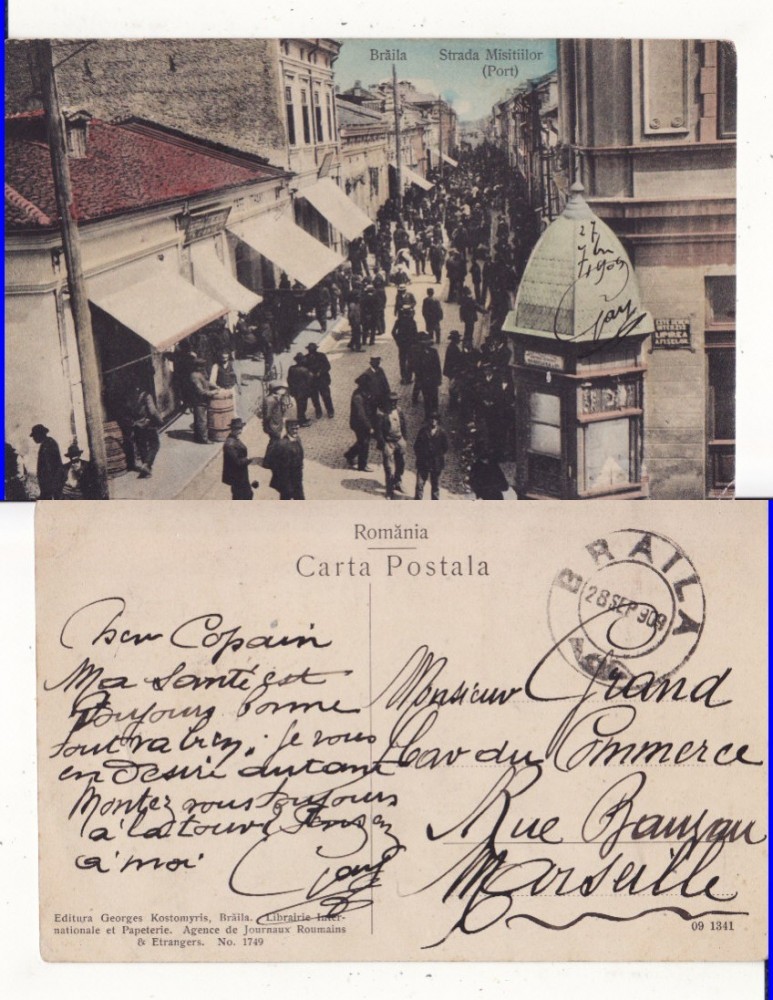 Brăila Strada Misitiilor
(Port)
27
7bre
1909
România
Carta Postala
BRAILA
28 SEP 909
Mon Copain
Ma Santé est
Toujours bonne
tout va bien. je vous
en desire autant
Montez vous toujours
à la tour
à moi
Monsieur Grand
du Commerce
Rue
Marseille
Editura Georges Kostomyris, Brăila. Librairie Inter-
nationale et Papeterie. Agence de Journaux Roumains
& Etrangers. No. 1749
09 1341